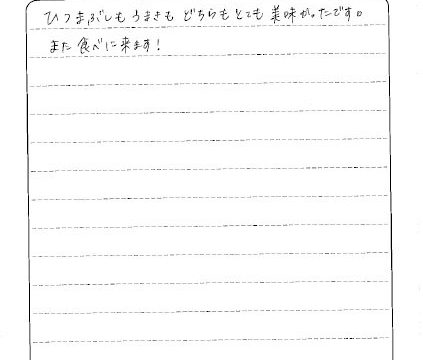 ひつまぶしもうまきも どちらもとても 美味かったです。
また食べに来ます!